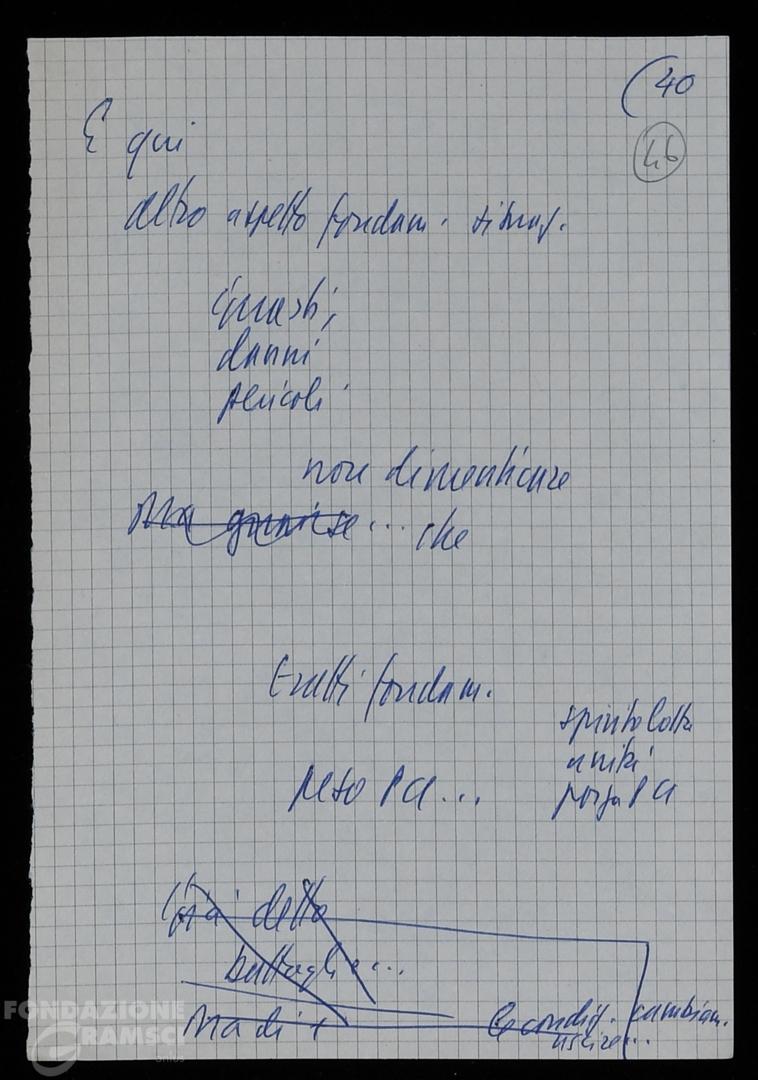 (40
46
E qui
altro aspetto fondam. situaz.
Guasti,
danni
pericoli
non dimenticare
Ma ... che
Tratti fondam.
spirito lotta
unità
forza PCI
peso PCI...
Già detto
battaglie...
Ma di +
condiz. cambiam.
uscire...
FONDAZIONE
GRAMSCI
onlus